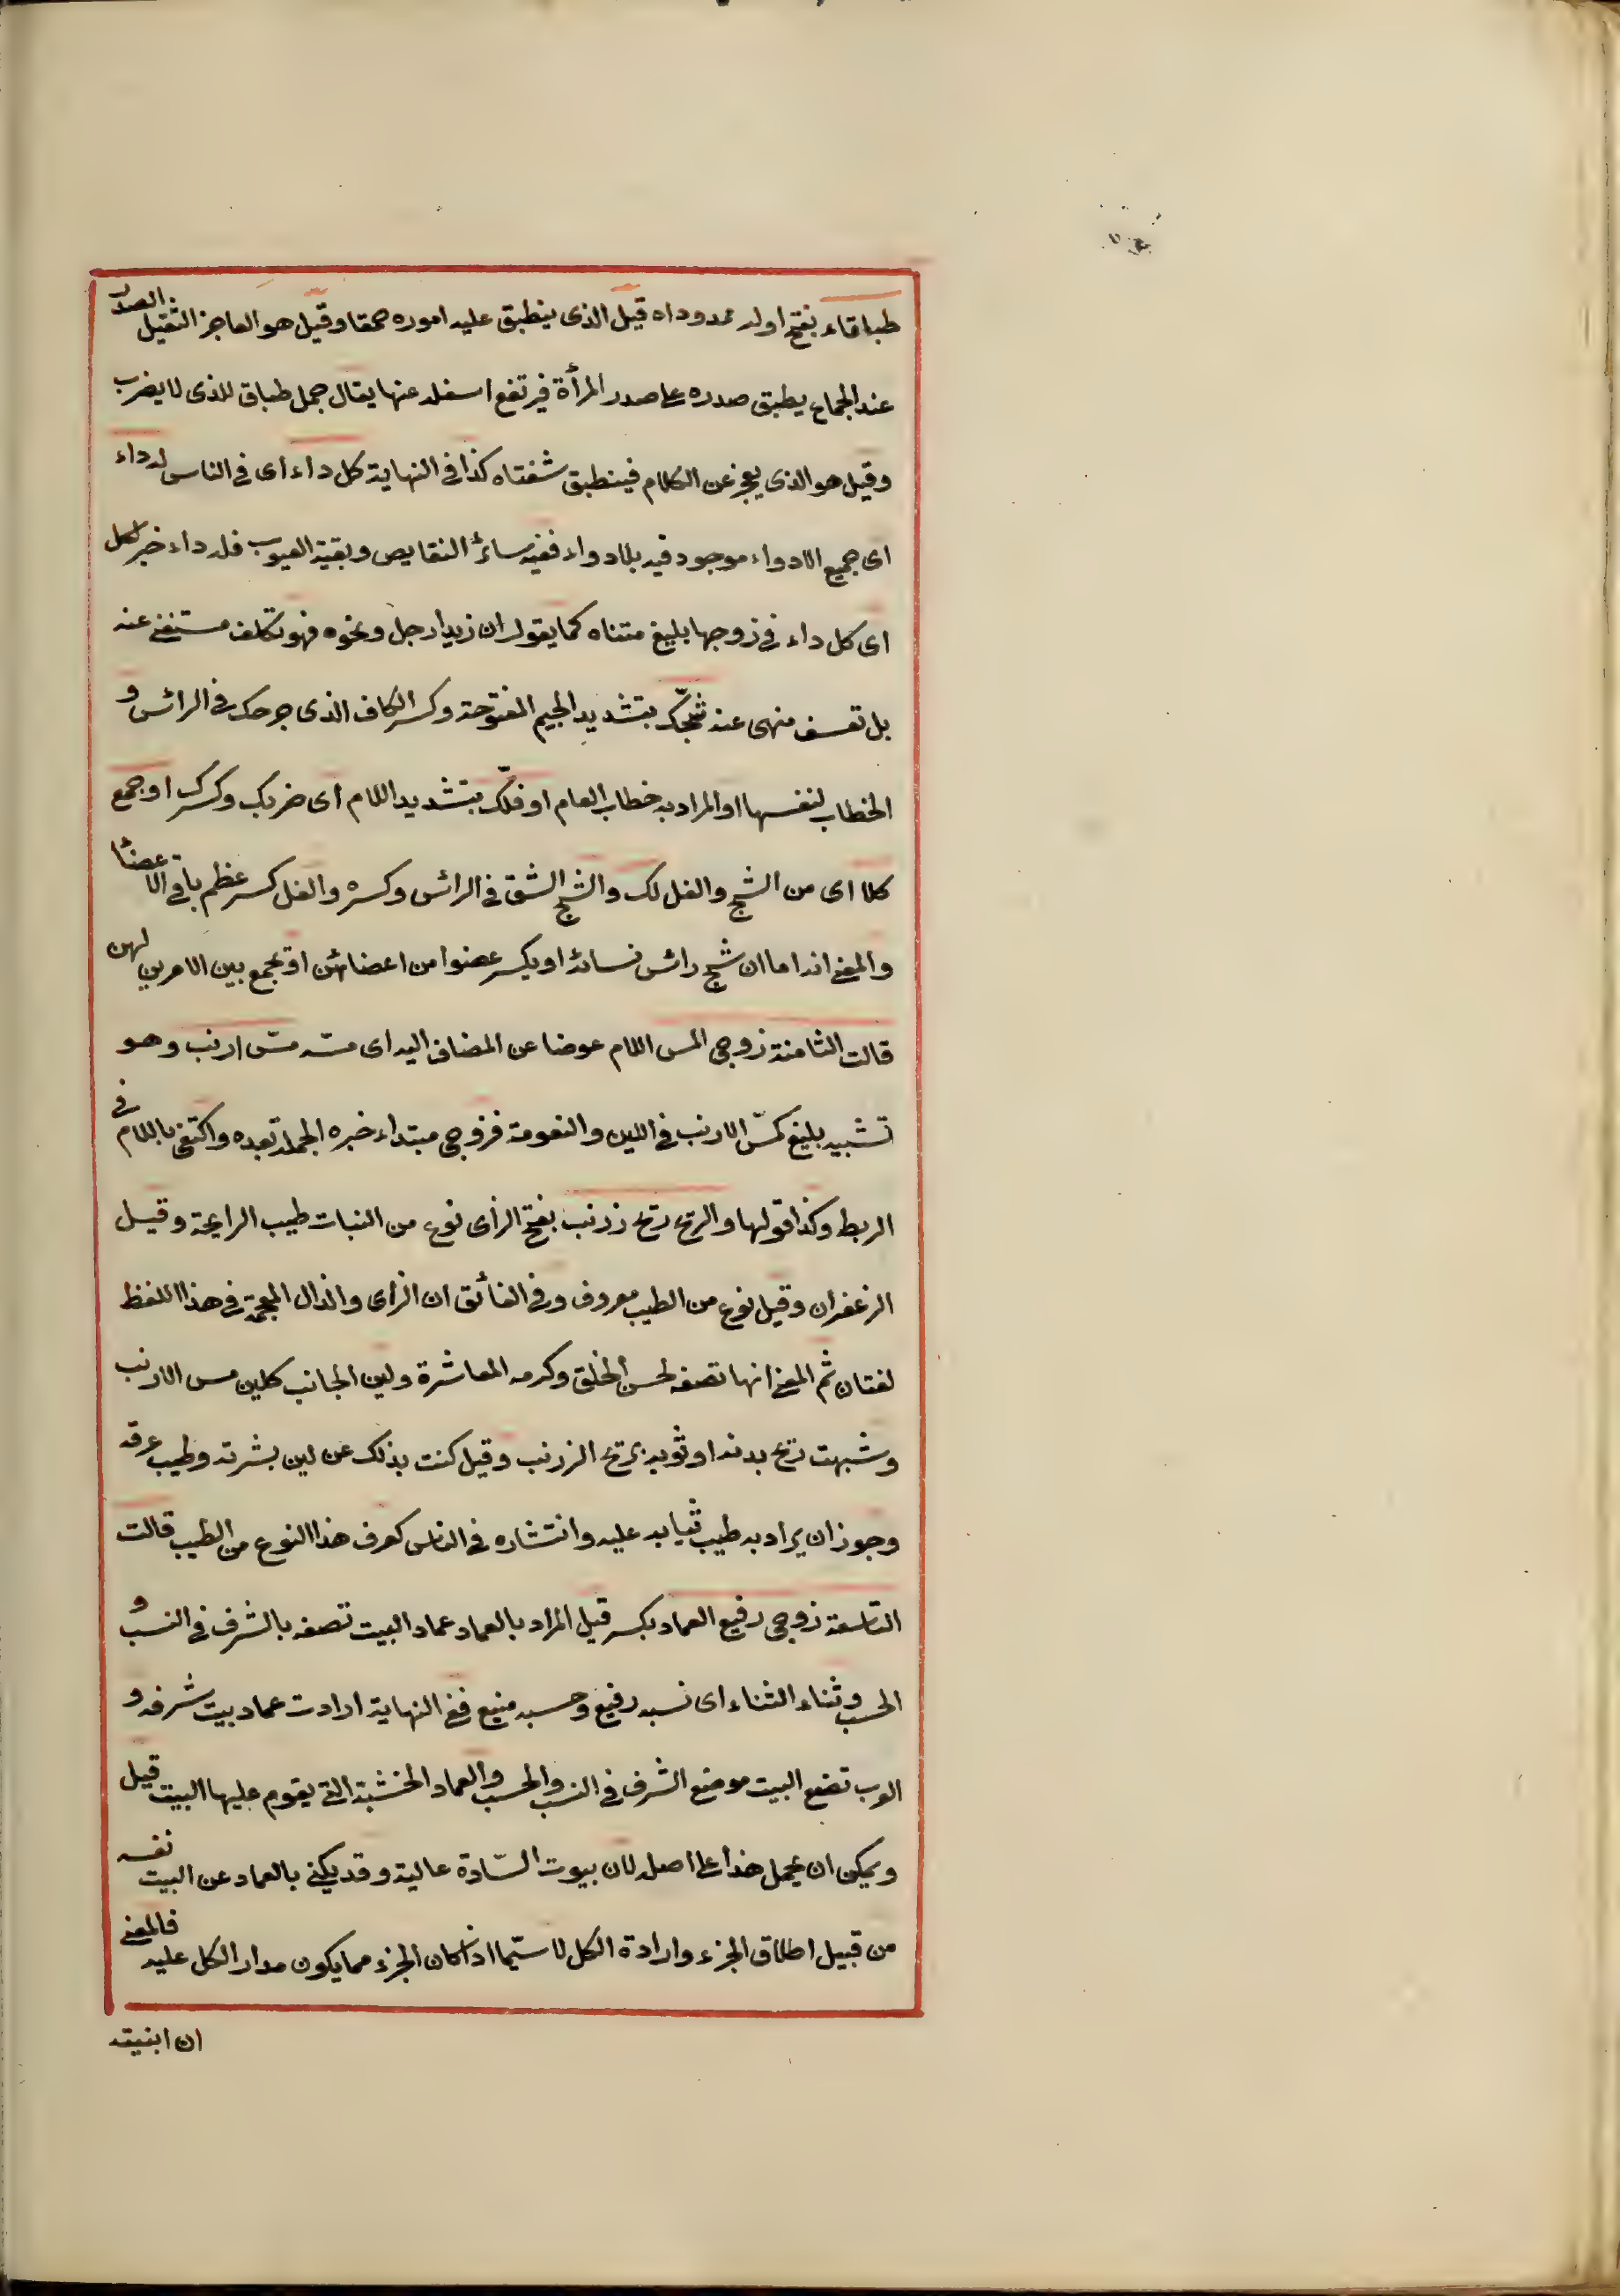 طباقاء بفتح اوله ممدوداه قيل الذى ينطبق عليه اموره حمقا وقيل هو العاجز الثقيل الصدر
عند الجماع يطبق صدره على صدر المرأة فيرتفع اسفله عنها يقال جمل طباق للذى لا يضرب
وقيل هو الذى يعجز عن الكلام فينطبق شفتاه كذا فى النهاية كل داء اى فى الناس له داء
اى جميع الادواء موجود فيه بلا دواء ففيه سائر النقايص وبقية العيوب فله داء خبر لكل
اى كل داء فى زوجها بليغ متناه كما يقول ان زيدا رجل ونحوه فهو تكلف مستغنى عنه
بل تعسف منهى عنه شجّك بتشديد الجيم المفتوحة وكسر الكاف الذى جرحك فى الرائس و
الخطاب لنفسها او المراد به خطاب العام او فلّك بتشديد اللام اى ضربك وكسرك او جمع
كلا اى من الشج والفل لك والشج الشق فى الرائس وكسره والفل كسر عظم باقى الاعضا
والمعنى انه اما ان شج رائس نسائه او يكسر عضوا من اعضائهن او تجمع بين الامرين لهن
قالت الثامنة زوجى المس اللام عوضا عن المضاف اليه اى مسّه مسّ ارنب وهو
تشبيه بليغ كمسّ الارنب فى اللين والنعومة فزوجى مبتداء خبره الجملة بعده واكتفى باللام فى
الربط وكذا قولها والريح ريح زرنب بفتح الزاى نوع من النبات طيب الرايحة وقيل
الزعفران وقيل نوع من الطيب معروف وفى الفائق ان الزاى والذال المعجمة فى هذا اللفظ
لغتان ثم المعنى انها تصفه لحسن الخلق وكرمه المعاشرة ولين الجانب كلين مس الارنب
وشبهت ريح بدنه او ثوبه بريح الزرنب وقيل كنت بذلك عن لين بشرته وطيب عرقه
وجوز ان يراد به طيب ثيابه عليه وانتشاره فى الناس كعرف هذا النوع من الطيب قالت
التاسعة زوجى رفيع العماد بكسر قيل المراد بالعماد عماد البيت تصفه بالشرف فى النسب و
الحسب وثناء الثناء اى نسبه رفيع وحسبه منيع ففى النهاية ارادت عماد بيت شرفه و
العرب تضع البيت موضع الشرف فى النسب والحسب والعماد الخشبة التى يقوم عليها البيت قيل
ويمكن ان يحمل هذا على اصله لان بيوت السّادة عالية وقد يكنى بالعماد عن البيت نفسه
من قبيل اطلاق الجزء وارادة الكل لا سيّما اذا كان الجزء مما يكون مدار الكل عليه فالمعنى
ان ابنيته